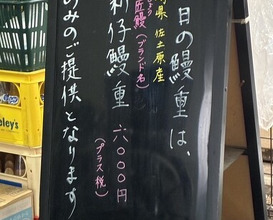 日の鰻重は、
県 佐土原産
鰻（ブランド名）
仔鰻重 六〇〇〇円
（プラス税）
みのご提供となります
eley's